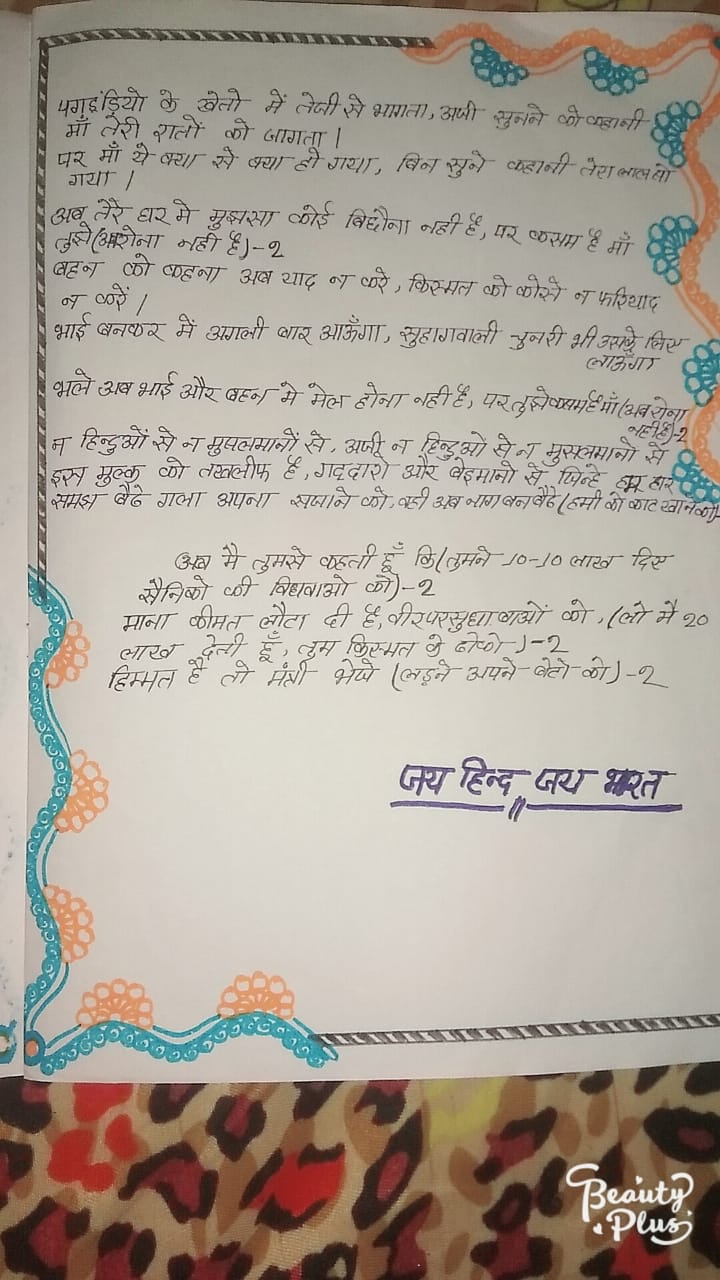 पगडंडियो के खेतो में तेजी से भागता, अजी सुनने को कहानी
माँ तेरी रातों को जागता।
पर माँ ये क्या से क्या हो गया, बिन सुने कहानी तेरा लाल सो
गया।
अब तेरे घर मे मुझसा कोई बिछौना नही है, पर कसम है माँ
तुझे (अब रोना नही है)-2
बहन को कहना अब याद न करे, किस्मत को कोसे न फरियाद
न करें।
भाई बनकर में अगली बार आऊँगा, सुहागवाली चुनरी भी उसके लिए
लाऊँगा
भले अब भाई और बहन मे मेल होना नही है, पर तुझे कसम है माँ (अब रोना
नही है)-2
न हिन्दुओं से न मुसलमानों से, अजी न हिन्दुओं से न मुसलमानो से
इस मुल्क को तखलीफ है, गद्दारो और बेइमानो से, जिन्हे हम हार
समझ बैठे गला अपना सजाने को, वही अब नाग बन बैठे (हमी को काट खाने को)-
अब मै तुमसे कहती हूँ कि (तुमने 10-10 लाख दिए
सैनिको की विधवाओ को)-2
माना कीमत लौटा दी है, वीर को, (लो मै 20
लाख देती हूँ, तुम किस्मत के)-2
हिम्मत है तो मंत्री भेजे (लड़ने अपने बेटो को)-2
जय हिन्द जय भारत
॥
Beauty
Plus